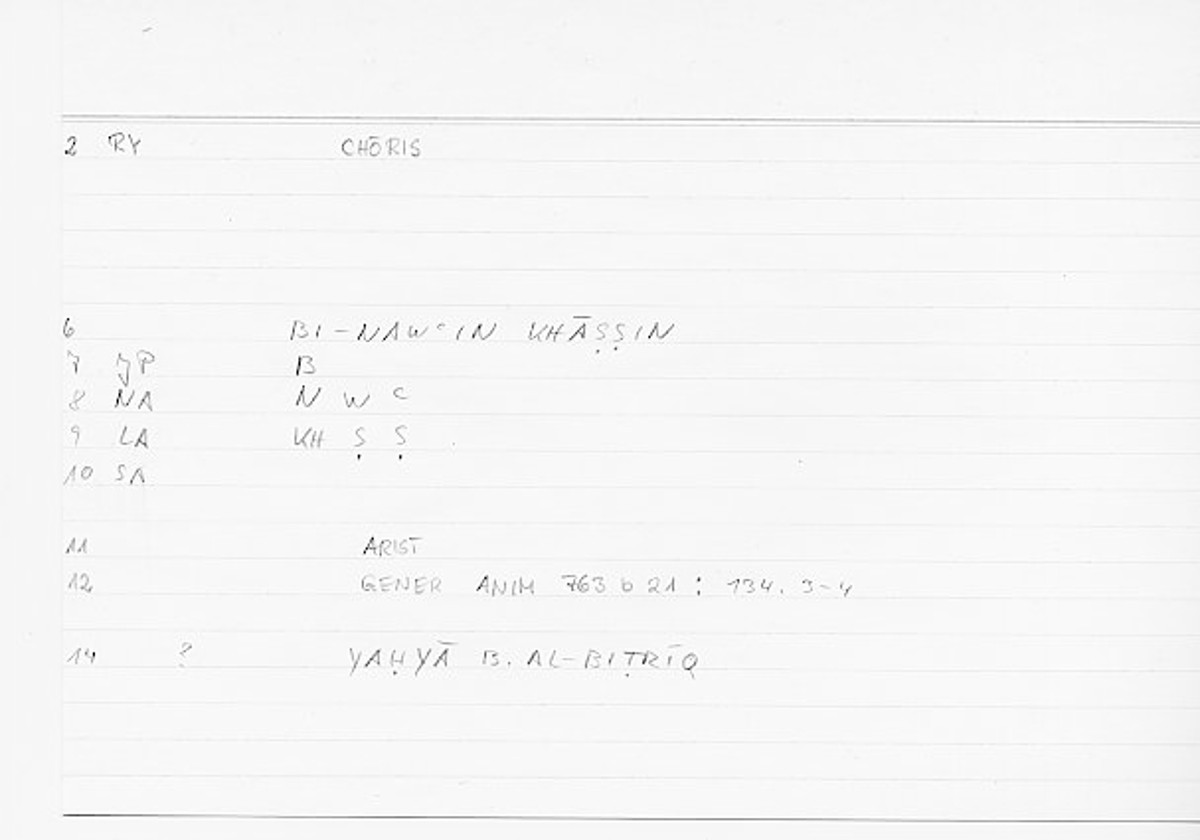 2 RY CHŌRIS
6 BI-NAWᶜIN KHĀṢṢIN
7 JP B
8 NA N W ᶜ
9 LA KH Ṣ Ṣ
10 SA
11 ARIST
12 GENER ANIM 763 b 21 : 134. 3-4
14 ? YAḤYĀ B. AL-BIṬRĪQ